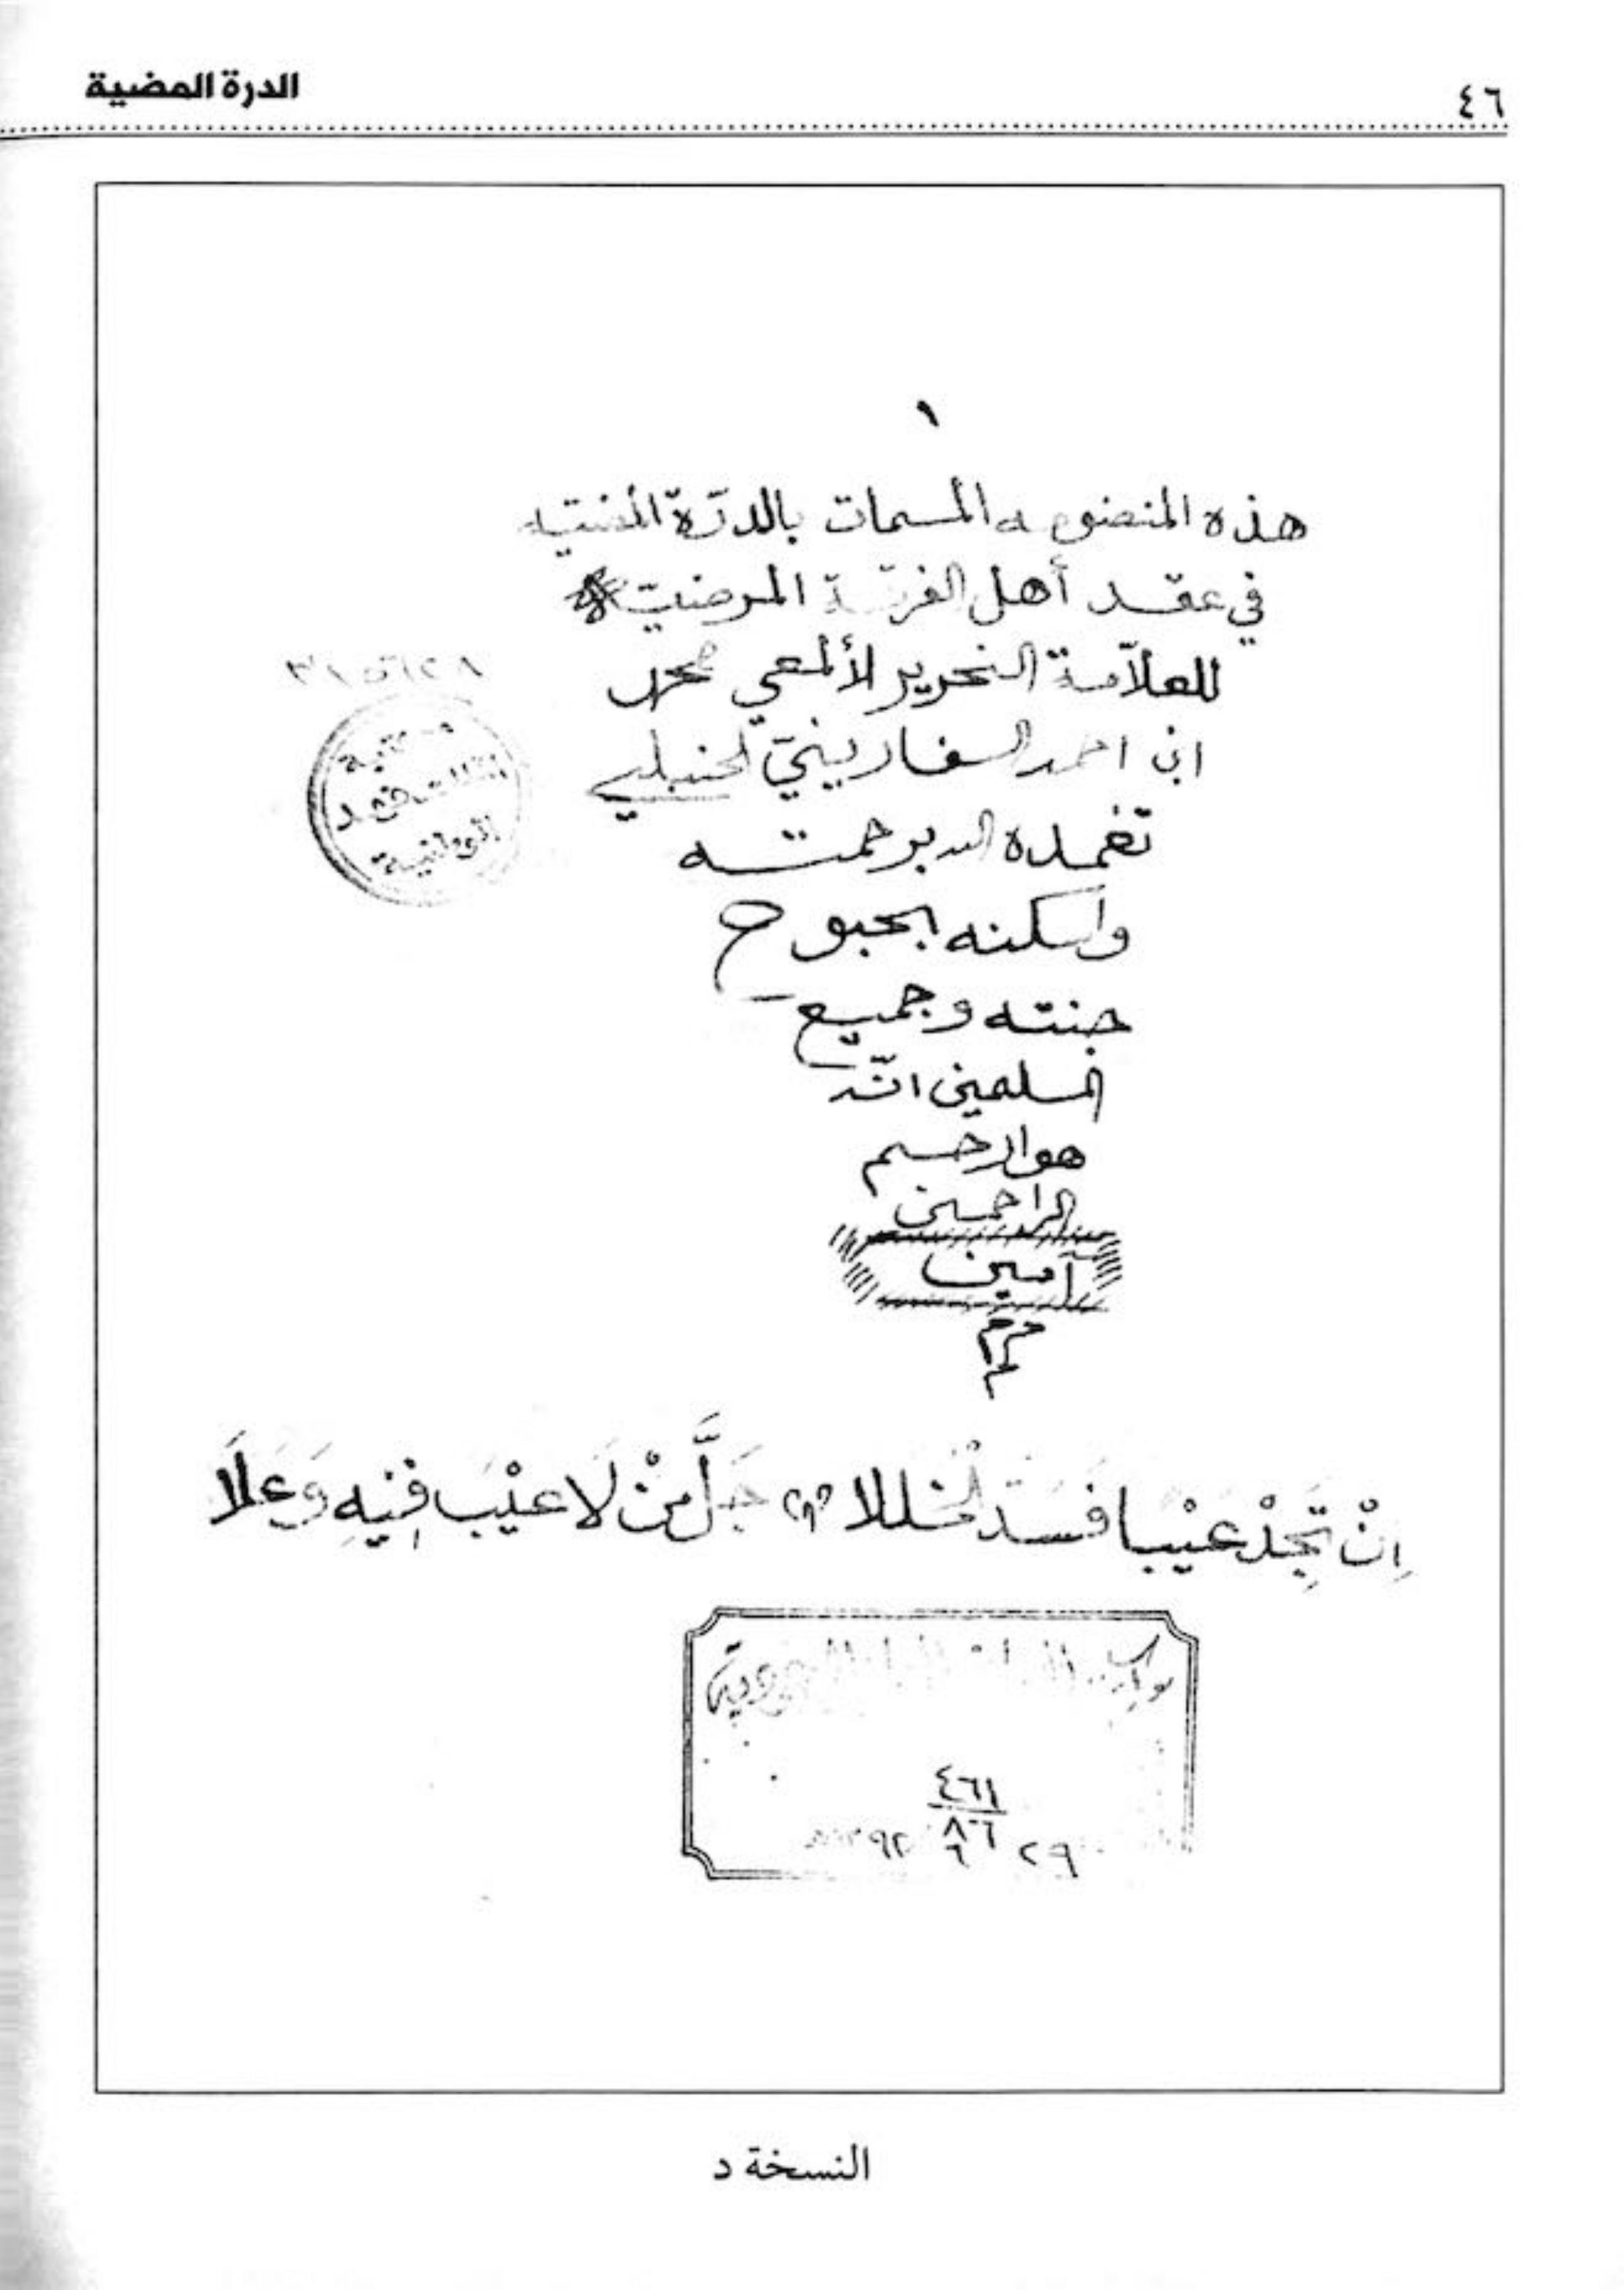 ٤٦
الدرة المضية
١
هذه المنضومه المسمات بالدرّة المضيّه
في عقد أهل الفرقة المرضيّة
للعلاّمة النحرير لألمعي محمد
ابن احمد السفاريني الحنبلي
تغمده الله برحمته
واسكنه بحبوح
جنته وجميع
المسلمين انّه
هو ارحم
الراحمين
آمين
مكتبة
الملك فهد
الوطنية
اِنْ تَجِدْ عَيْبا فَسُدَّ الخللا جَلَّ مَنْ لَا عَيْبَ فِيْهِ وَعَلَا
٤٦١
٨٦
النسخة د